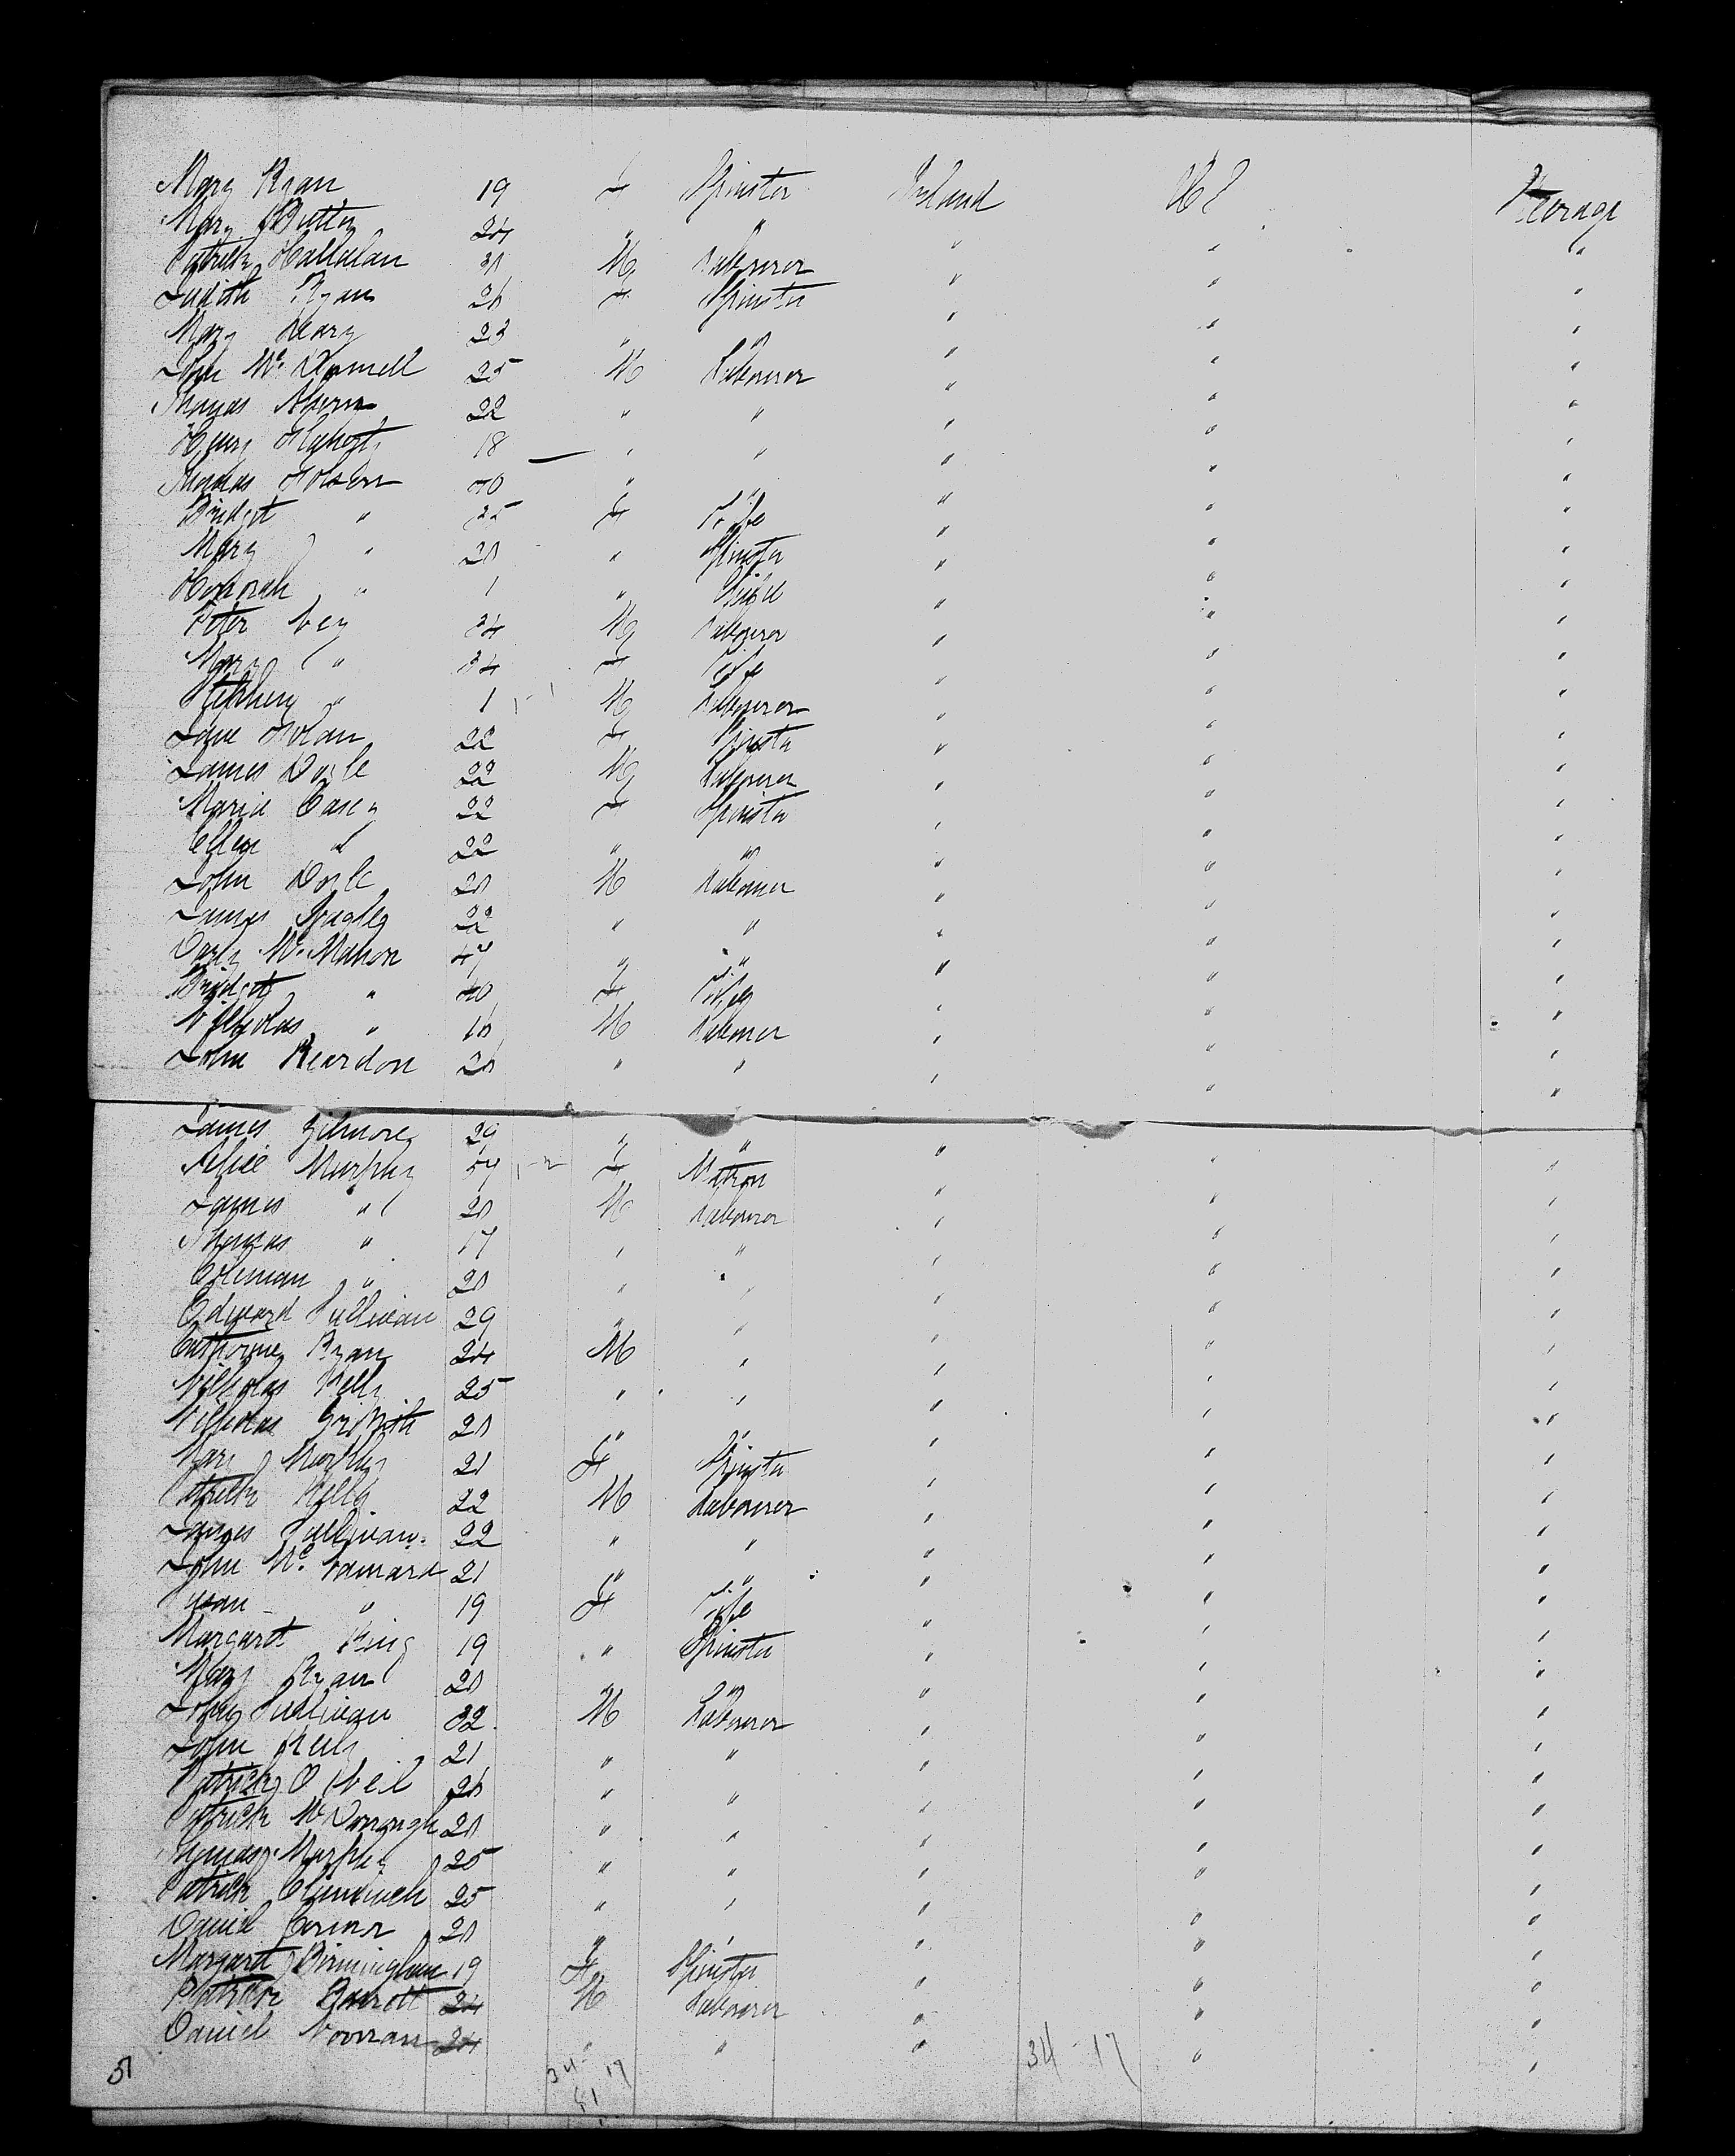 Mary Ryan 19 F Spinster Ireland US Steerage
Mary 24 " " " " "
Patrick Hallalan M Labourer " " "
Judith Ryan 26 F Spinster " " "
Mary Leary 23 " " " " "
John Mc Donnell 25 M Labourer " " "
Thomas Ahern 22 " " " " "
Henry 18 " " " " "
Thomas 40 " " " " "
Bridget " 35 F Wife " " "
Mary " 20 " Spinster " " "
Honorah " 1 " Child " " "
Peter 34 M Labourer " " "
Mary " 34 F Wife " " "
Stephen " 1 M Labourer " " "
Jane Nolan 22 F Spinster " " "
James Doyle 22 M Labourer " " "
Maria Casey 22 F Spinster " " "
Ellen " 22 " " " " "
John Doyle 20 M Labourer " " "
James 22 " " " " "
Mc Mahon 47 " " " " "
Bridget " 40 F Wife " " "
Nicholas " 16 M Labourer " " "
John Reardon 20 " " " " "
James Gilmore 29 " " " " "
Alice Murphy 57 F Matron " " "
James " 20 M Labourer " " "
Thomas " 17 " " " " "
Coleman " 20 " " " " "
Edward Sullivan 29 " " " " "
Ryan 24 M " " " "
Nicholas Kelly 25 " " " " "
Nicholas Griffith 20 " " " " "
Mary Murphy 21 F Spinster " " "
Patrick Kelly 22 M Labourer " " "
James Sullivan 22 " " " " "
John Mc Namara 21 " " " " "
Susan " 19 F Wife " " "
Margaret King 19 " Spinster " " "
Mary Ryan 20 " " " " "
John Sullivan 32 M Labourer " " "
John 21 " " " " "
Patrick O Neil 20 " " " " "
Patrick McDonough 20 " " " " "
Thomas Murphy 25 " " " " "
Patrick 25 " " " " "
Daniel Connor 20 " " " " "
Margaret Birmingham 19 F Spinster " " "
Patrick Barrett 24 M Labourer " " "
Daniel Noonan 24 " " " " "
51 34 17 34 - 17
51